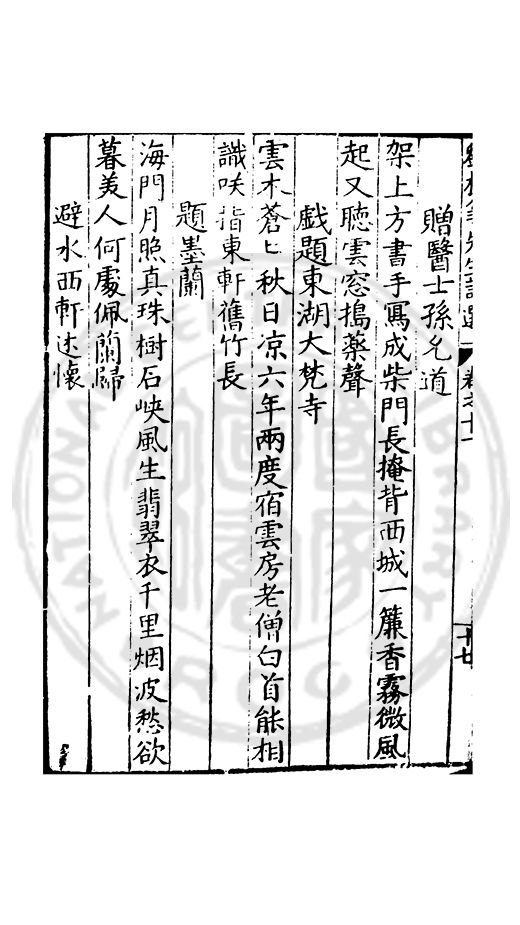 贈醫士孫允道
架上方書手寫成柴門長掩背西城一簾香霧微風
起又聽雲窓搗藥聲
戲題東湖大梵寺
雲木蒼匕秋日凉六年兩度宿雲房老僧白首能相
識咲指東軒舊竹長
題墨蘭
海門月照真珠樹石峽風生翡翠衣千里烟波愁欲
暮美人何處佩蘭歸
避水西軒述懷
十七